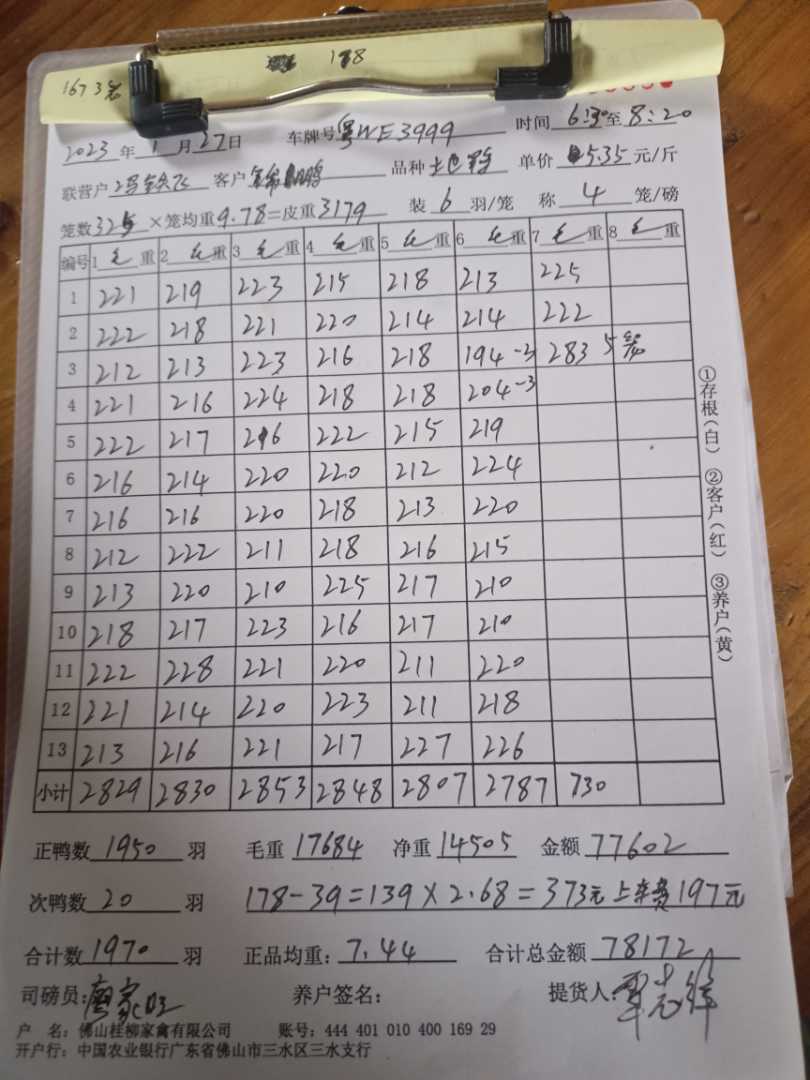 1673元 178
2023年1月27日 车牌号粤WE3999 时间6:30至8:20
联营户 客户 品种土 单价5.35元/斤
笼数325×笼均重9.78=皮重3179 装6羽/笼 称4笼/磅
编号 1毛重 2毛重 3毛重 4毛重 5毛重 6毛重 7毛重 8毛重
1 221 219 223 215 218 213 225
2 222 218 221 220 214 214 222
3 212 213 223 216 218 194-3 283 5笼
4 221 216 224 218 218 204-3
5 222 217 216 222 215 219
6 216 214 220 220 212 224
7 216 216 220 218 213 220
8 212 222 211 218 216 215
9 213 220 210 225 217 210
10 218 217 223 216 217 210
11 222 228 221 220 211 220
12 221 214 220 223 211 218
13 213 216 221 217 227 226
小计 2829 2830 2853 2848 2807 2787 730
①存根(白) ②客户(红) ③养户(黄)
正鸭数1950羽 毛重17684 净重14505 金额77602
次鸭数20羽 178-39=139×2.68=373元上车费197元
合计数1970羽 正品均重:7.44 合计总金额78172
司磅员:廖家 养户签名: 提货人:
户 名:佛山桂柳家禽有限公司 账号:444 401 010 400 169 29
开户行:中国农业银行广东省佛山市三水区三水支行